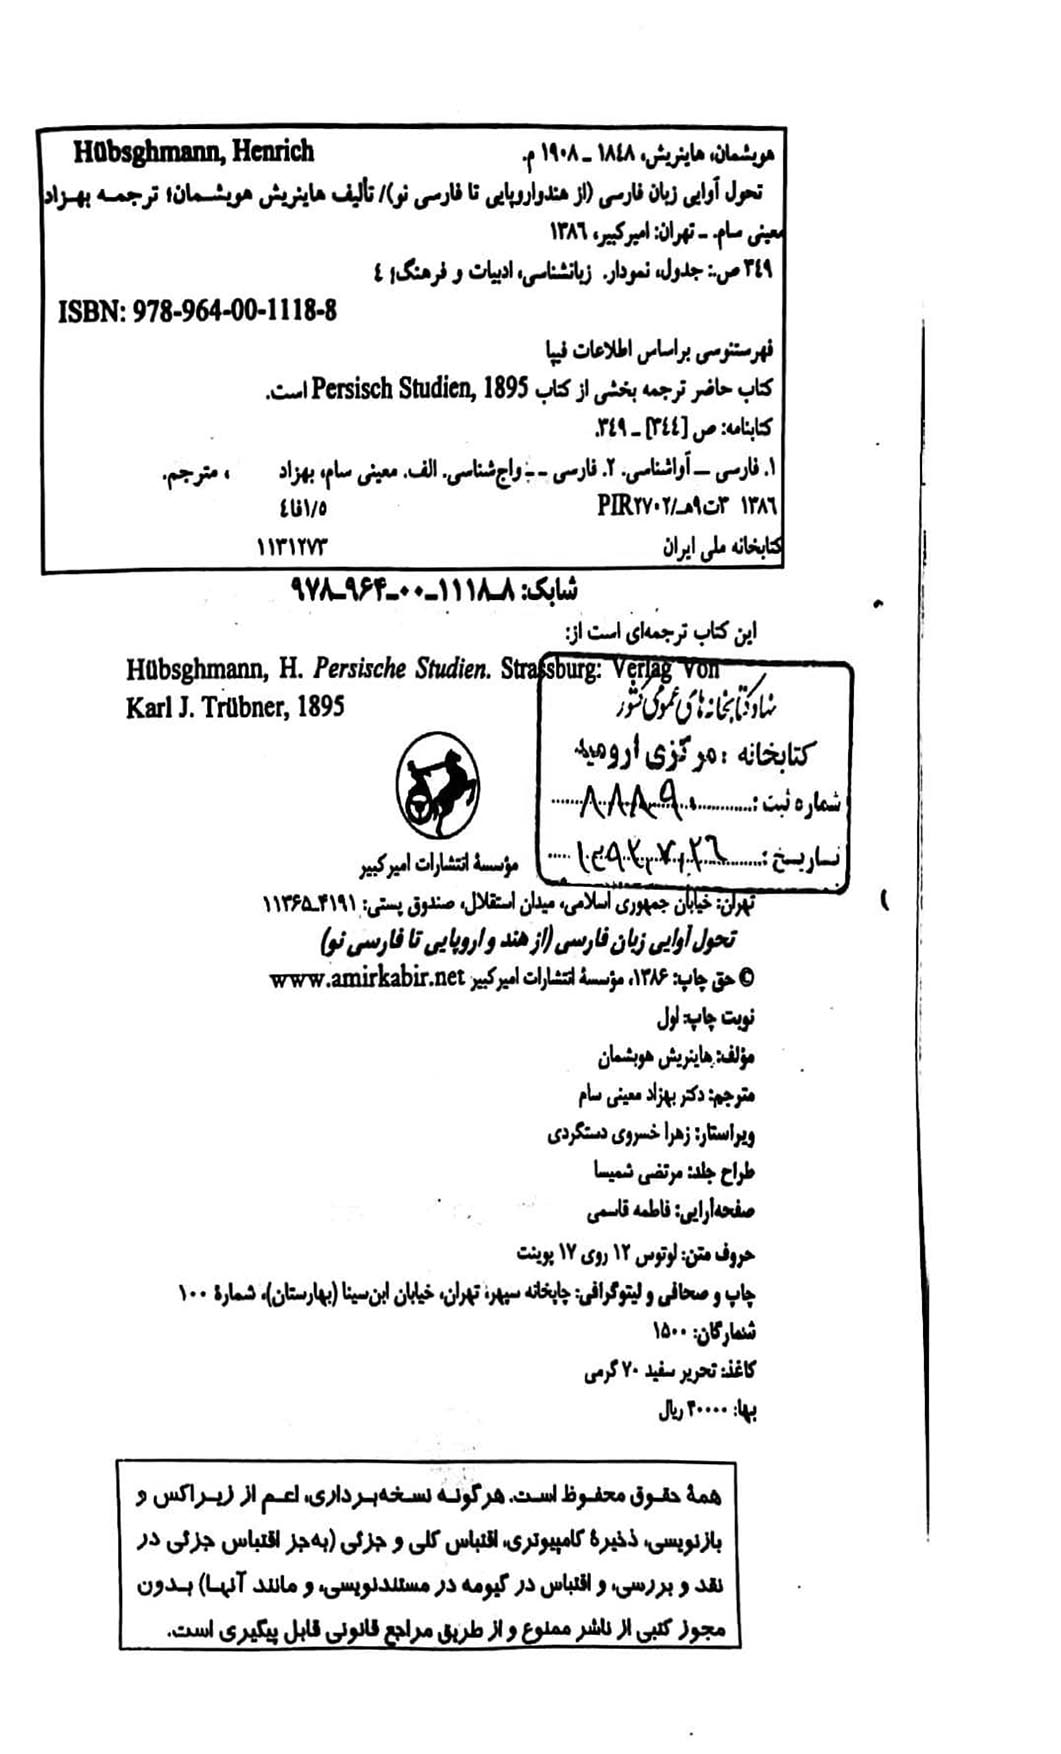 هوبشمان، هاینریش، ۱۸٤۸ ـ ۱۹۰۸ م. Hübsghmann, Henrich
تحول آوایی زبان فارسی (از هندواروپایی تا فارسی نو)/ تألیف هاینریش هوبشمان؛ ترجمه بهزاد
معینی سام. ـ تهران: امیرکبیر، ۱۳۸٦
۳٤۹ ص.: جدول، نمودار. زبانشناسی، ادبیات و فرهنگ؛ ٤
ISBN: 978-964-00-1118-8
فهرستنوسی براساس اطلاعات فیپا
کتاب حاضر ترجمه بخشی از کتاب Persisch Studien, 1895 است.
کتابنامه: ص [۳٤٤] ـ ۳٤۹.
۱. فارسی ــ آواشناسی. ۲. فارسی ــ واج‌شناسی. الف. معینی سام، بهزاد ، مترجم.
۱۳۸٦ ۳ت۹هـ/PIR۲۷۰۲ ٤فا۱/٥
کتابخانه ملی ایران ۱۱۳۱۲۷۳
شابک: ۸ـ۱۱۱۸ـ۰۰ـ۹۶۴ـ۹۷۸
این کتاب ترجمه‌ای است از:
Hübsghmann, H. Persische Studien. Strassburg: Verlag Von
Karl J. Trübner, 1895
نهاد کتابخانه‌های عمومی کشور
کتابخانه : مرکزی ارومیه
شماره ثبت :
تاریخ :
مؤسسهٔ انتشارات امیرکبیر
تهران: خیابان جمهوری اسلامی، میدان استقلال، صندوق پستی: ۴۱۹۱ـ۱۱۳۶۵
تحول آوایی زبان فارسی (از هند و اروپایی تا فارسی نو)
© حق چاپ: ۱۳۸۶، مؤسسهٔ انتشارات امیرکبیر www.amirkabir.net
نوبت چاپ: اول
مؤلف: هاینریش هوبشمان
مترجم: دکتر بهزاد معینی سام
ویراستار: زهرا خسروی دستگردی
طراح جلد: مرتضی شمیسا
صفحه‌آرایی: فاطمه قاسمی
حروف متن: لوتوس ۱۲ روی ۱۷ پوینت
چاپ و صحافی و لیتوگرافی: چاپخانه سپهر، تهران، خیابان ابن‌سینا (بهارستان)، شمارهٔ ۱۰۰
شمارگان: ۱۵۰۰
کاغذ: تحریر سفید ۷۰ گرمی
بها: ۴۰۰۰۰ ریال
همهٔ حقوق محفوظ است. هرگونه نسخه‌برداری، اعم از زیراکس و
بازنویسی، ذخیرهٔ کامپیوتری، اقتباس کلی و جزئی (به‌جز اقتباس جزئی در
نقد و بررسی، و اقتباس در گیومه در مستندنویسی، و مانند آنها) بدون
مجوز کتبی از ناشر ممنوع و از طریق مراجع قانونی قابل پیگیری است.